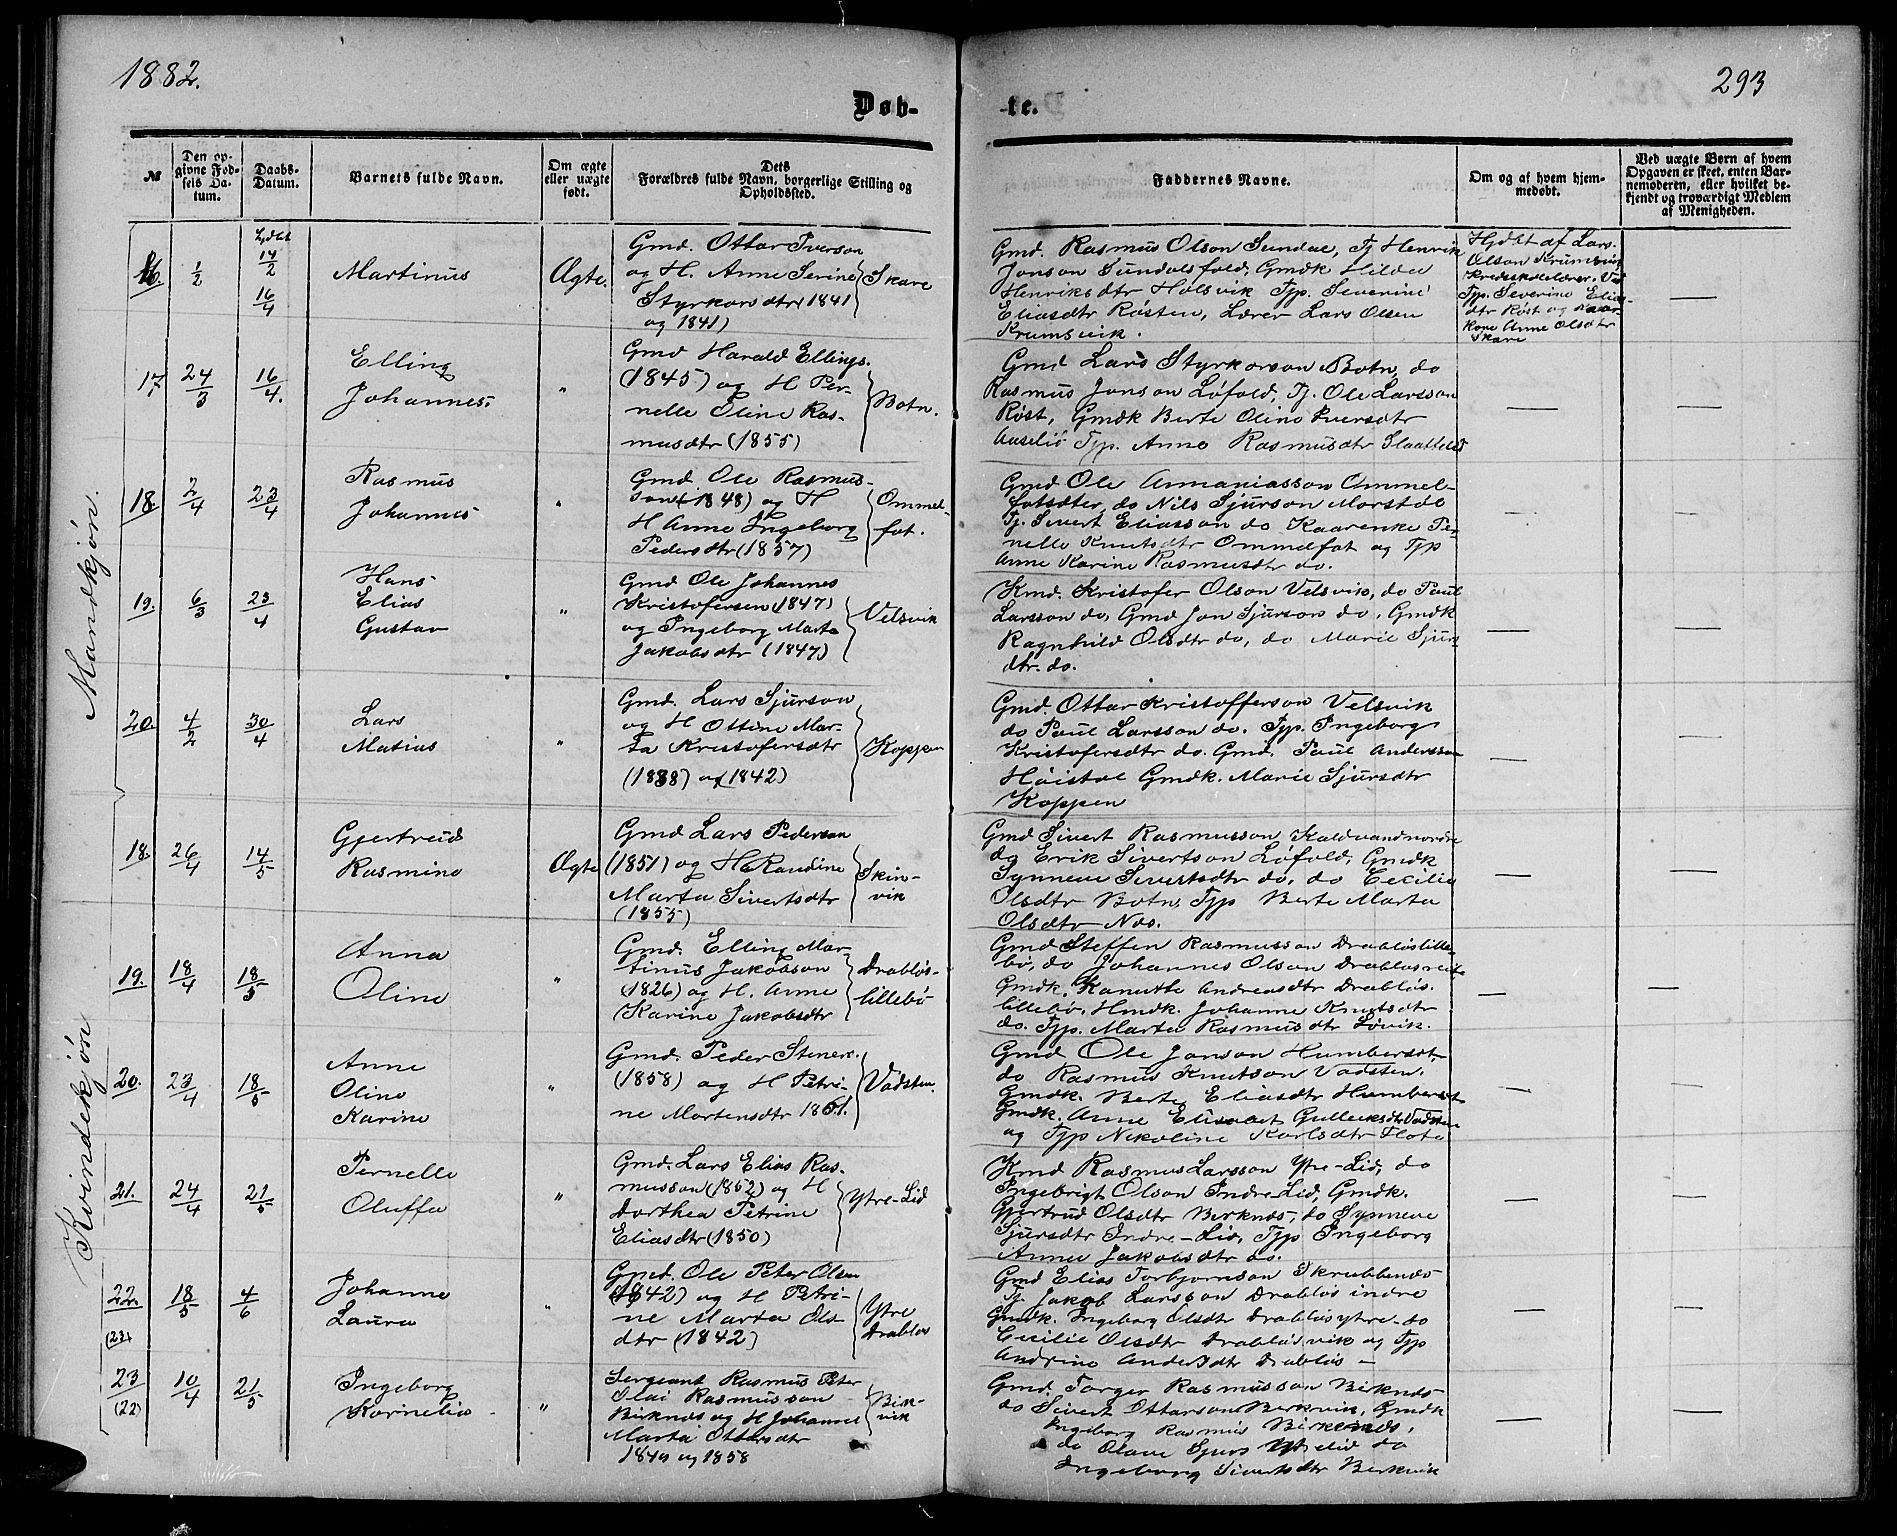 1882.
293
Døb-
te.
№
Den op-
givne Fød-
sels Da-
tum.
Daabs-
Datum.
Barnets fulde Navn.
Om ægte
eller uægte
født.
Dets
Forældres fulde Navn, borgerlige Stilling og
Opholdssted.
Faddernes Navne.
Om og af hvem hjem-
medøbt.
Ved uægte Børn af hvem
Opgaven er skeet, enten Bar-
nemoderen, eller hvilket be-
kjendt og troværdigt Medlem
af Menigheden.
Mandkjøn.
16. 1/2 14/2 16/4
Martinus
Ægte.
Gmd. Ottar Iverson
og H. Anne Serine
Styrkorsdtr (1841
og 1841)
Skare
Gmd. Rasmus Olson Sundal, Tj Henrik
Jonson Sundalsfold, Gmdk Hilda
Henriksdtr Holsvik Tjp. Severine
Eliasdtr Røsten, Lærer Lars Olsen
Krumsvik.
Hjdbt af Lars
Olson Krumsvik
Kredsskolelærer. Vid
Tjp. Severine Elias-
dtr Røst og
Kone Anne Olsdtr
Skare
17 24/3 16/4.
Elling
Johannes
"
Gmd Harald Ellings.
(1845) og H Per-
nelle Oline Ras-
musdtr (1855)
Botn.
Gmd Lars Styrkorson Botn, do
Rasmus Jonson Løfold, Tj. Ole Larsson
Røst, Gmdk Berte Oline Iversdtr
Aaselid Tjp. Anne Rasmusdtr Slaattelid
18 2/4 23/4
Rasmus
Johannes
"
Gmd. Ole Rasmus-
son (1848) og H
H Anne Ingeborg
Pedersdtr (1857)
Ommel-
fot.
Gmd Ole Annaniasson Ommel-
fotsæter, do Nils Sjurson Morstøl
Tj. Sivert Eliasson do Kaarenke Pe-
nelle Knutsdtr Ommelfot og Tjp
Anne Karine Rasmusdtr do.
19. 6/3 23/4
Hans
Elias
Gustav
"
Gmd Ole Johannes
Kristofersen (1847)
og Ingeborg Marta
Jakobsdtr (1847)
Velsvik
Kmd. Kristofer Olson Velsvik, do Paul
Larsson do, Gmd Jon Sjurson do. Gmdk
Ragnhild Olsdtr do, do Marie Sjurs-
dtr. do.
20. 4/2 30/4
Lars
Matias
"
Gmd. Lars Sjurson
og H Ottine Mar-
ta Kristofersdtr
(1838) og (1842)
Koppen
Gmd. Ottar Kristofferson Velsvik
do Paul Larsson do. Tjp. Ingeborg
Kristofersdtr do. Gmd. Paul Andersson
Høistøl Gmdk. Marie Sjursdtr
Koppen
Kvindekjøn
18. 26/4 14/5
Gjertreid
Rasmine
Ægte
Gmd Lars Pederson
(1851) og H. Randine
Marta Sivertsdtr
(1855)
Skin-
vik
Gmd Sivert Rasmusson Koldvandnordre
do Erik Sivertson Løfold, Gmdk
Synneve Sivertsdtr do, do Cecilie
Olsdtr Botn. Tjp Berte Marta
Olsdtr Nos.
19. 18/4 18/5
Anna
Oline
"
Gmd. Elling Mar-
tinus Jakobson
(1826) og H. Anne
Karine Jakobsdtr
Drabløs-
lillebø
Gmd Steffen Rasmusson Drabløslille-
bø, do Johannes Olson Drabløsreite
Gmdk. Kanutte Andreasdtr Drabløs
lillebø, Hmdk. Johanne Knutsdtr
do. Tjp. Marta Rasmusdtr Løvik.
20. 23/4 18/5
Anne
Oline
Karine
"
Gmd. Peder Stener.
(1858) og H Petri-
ne Mortensdtr 1861.
Vadsten.
Gmd Ole Jonson Humberset
do Rasmus Knutson Vadsten.
Gmdk. Berte Eliasdtr Humberset
Gmdk. Anne Elisabet Gulleiksdtr Vadsten
og Tjp Nikoline Karlsdtr Flote
21. 24/4 21/5
Pernelle
Oluffa
"
Gmd. Lars Elias Ras-
musson (1852) og H
Dorthea Petrine
Eliasdtr (1850)
Ytre-Lid
Kmd Rasmus Larsson Ytre-Lid, do
Ingebrigt Olson Indre Lid, Gmdk.
Gjertrud Olsdtr Birknes, do Synneve
Sjursdtr Indre-Lid, Tjp Ingeborg
Anna Jakobsdtr do.
22. (23) 18/5 4/6
Johanne
Laura
"
Gmd. Ole Peter Olsen
(1842) og H Petri-
ne Marta Ols-
dtr (1842)
Ytre
Drabløs
Gmd Elias Torbjørnson Skrubbenes
Tj Jakob Larsson Drabløs indre
Gmdk. Ingeborg Olsdtr Drabløsytre- do
Cecilie Olsdtr Drabløsvik og Tjp
Andrine Andersdtr Drabløs -
23 (22) 10/4 21/5
Ingeborg
Kornelia
"
Sergeant Rasmus Peter
Olai Rasmusson
Birknes og H Johanne
Marta Ottersdtr
1849 og 1858
Birk-
vik
Gmd. Torger Rasmusson Birknes
do Sivert Ottarson Birkvik, Gmdk
Ingeborg Rasmus Birkenes,
do Olave Sjurs Ytrelid do
Ingeborg Sivertsdtr Birkvik